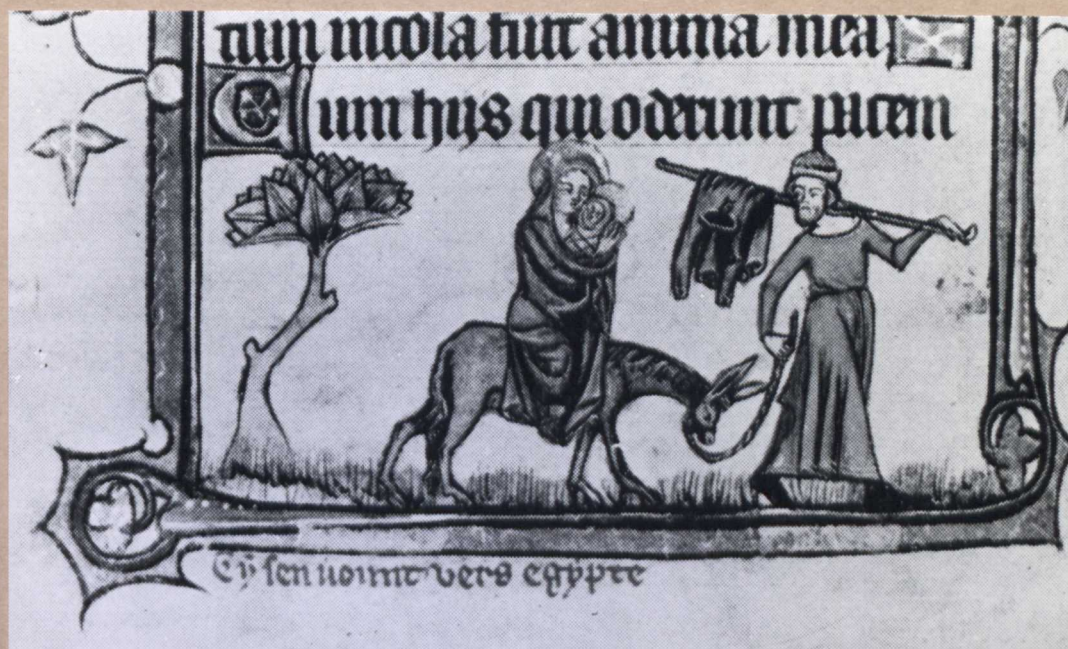 tum incola fuit anima mea
Cum hiis qui oderunt pacem
Cy sen vount vers egypte